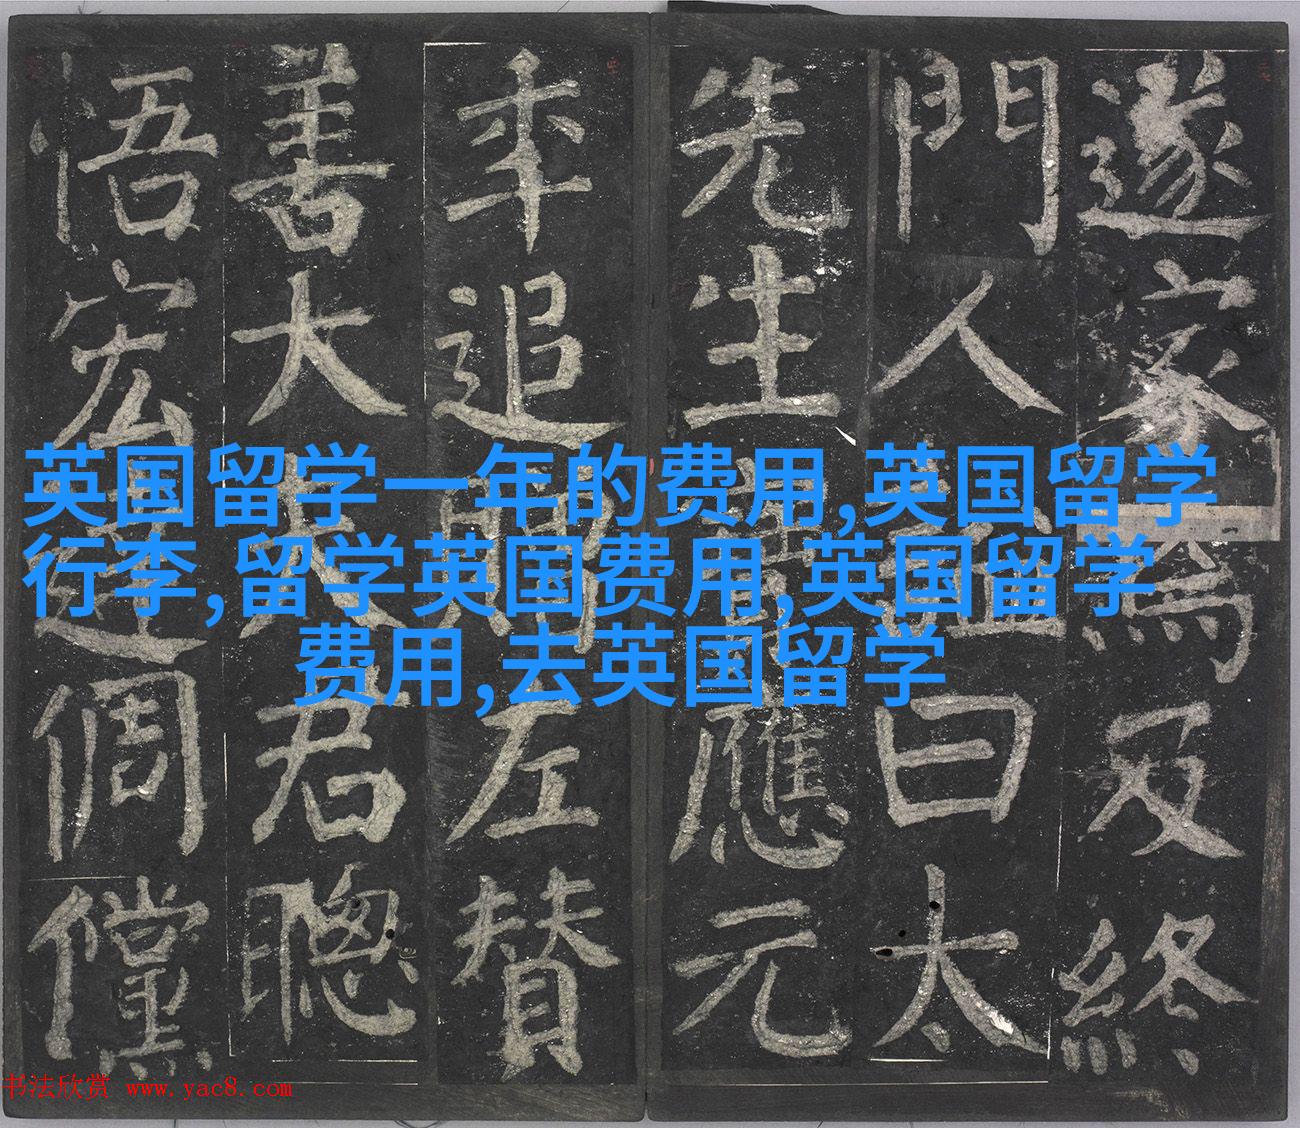 英国留学一年的费用,英国留学
行李,留学英国费用,英国留学
费用,去英国留学
遂家焉及終
門人謚曰太
先生寶應元
年追贈左贊
善大夫君聰
悟宏達倜儻
书法欣赏 www.yac8.com